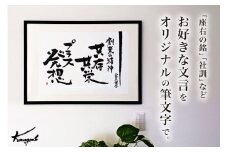 『座右の銘』『社訓』など
お好きな文言を
オリジナルの筆文字で
創業の精神
共存
共栄
プラス
発想